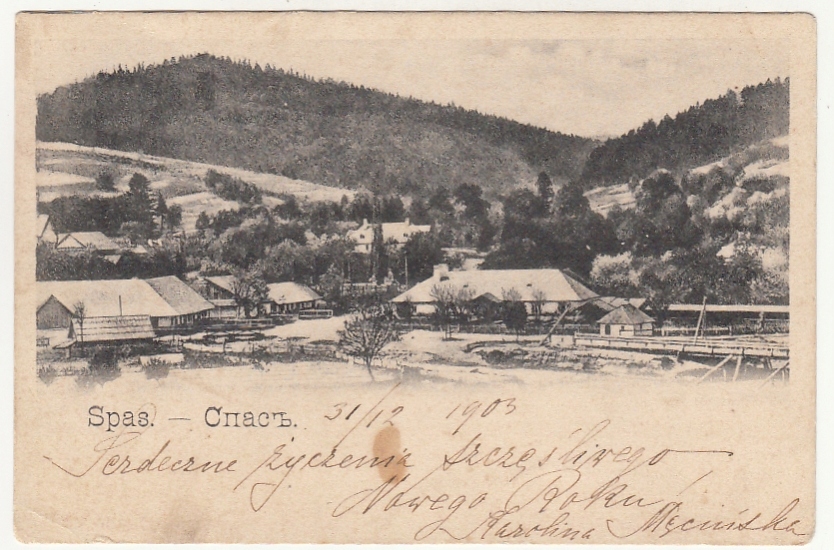 Spas. — Спасъ. 31/12 1903
Serdeczne życzenia szczęśliwego
Nowego Roku
Karolina Męcińska